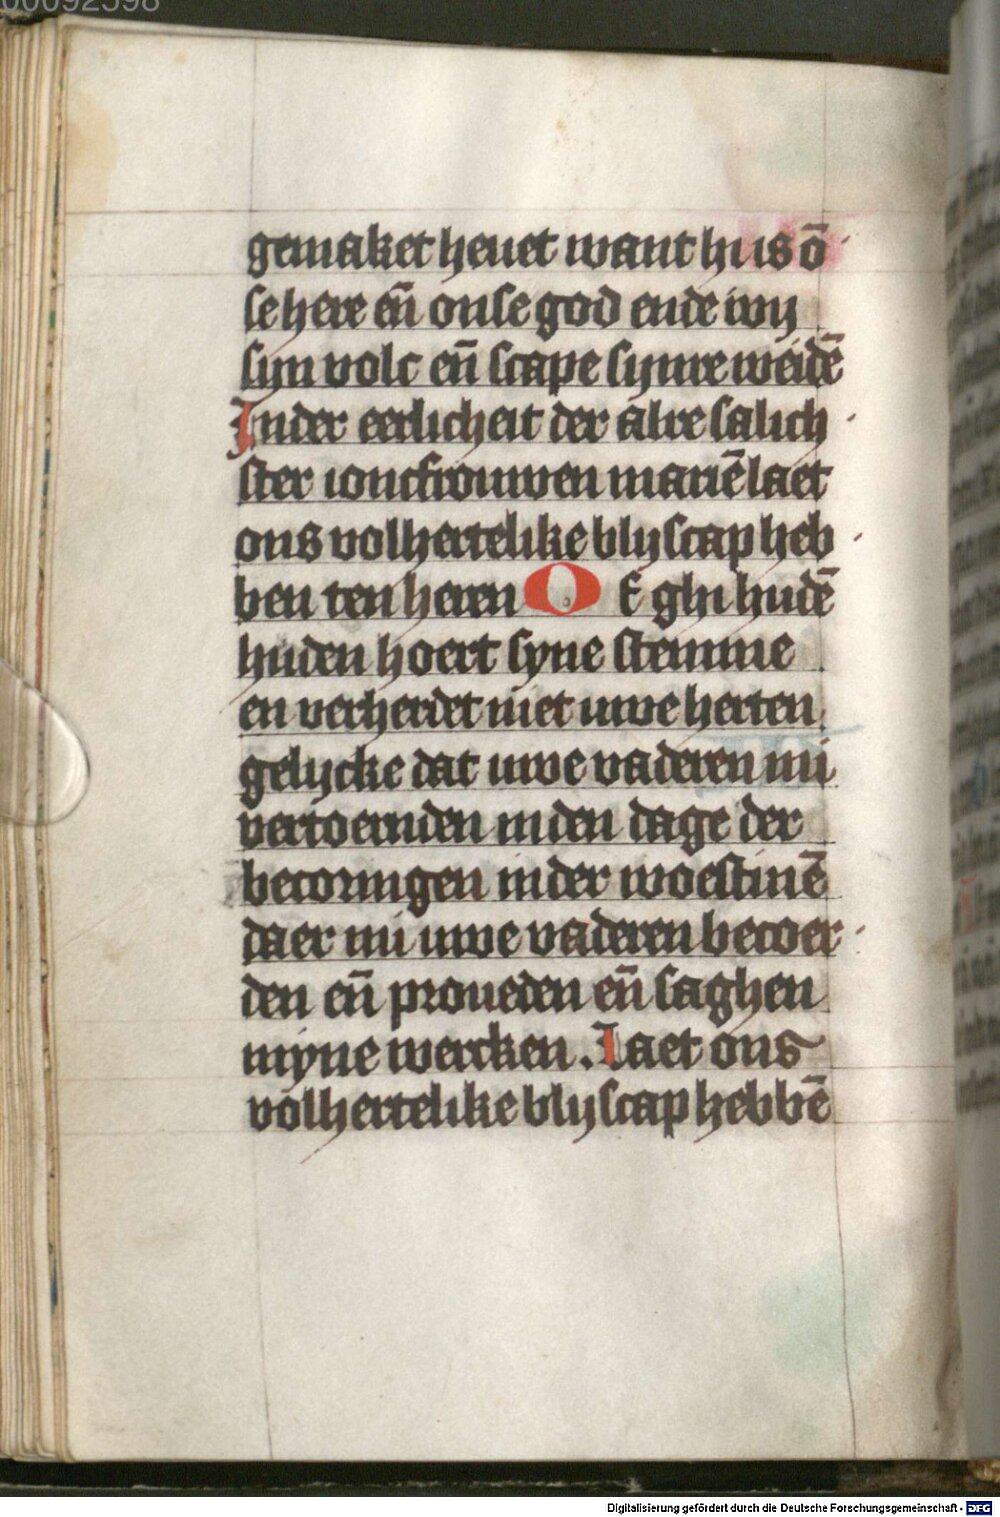 00092598
gemaket heuet want hi is ō
se here en̄ onse god ende wij
sijn volc en̄ scape sijnre weidē
Inder eerlicheit der alre salich
ster ioncfrouwen mariē laet
ons volhertelike blijscap heb
ben ten heren O E ghi hudē
huden hoert syne stemme
en verherdet niet uwe herten
gelijcke dat uwe vaderen mi
vertoernden inden dage der
becoringen inder woestinē
daer mi uwe vaderen becoer
den en̄ proueden en̄ saghen
myne wercken. Laet ons
volhertelike blijscap hebbē
Digitalisierung gefördert durch die Deutsche Forschungsgemeinschaft - DFG